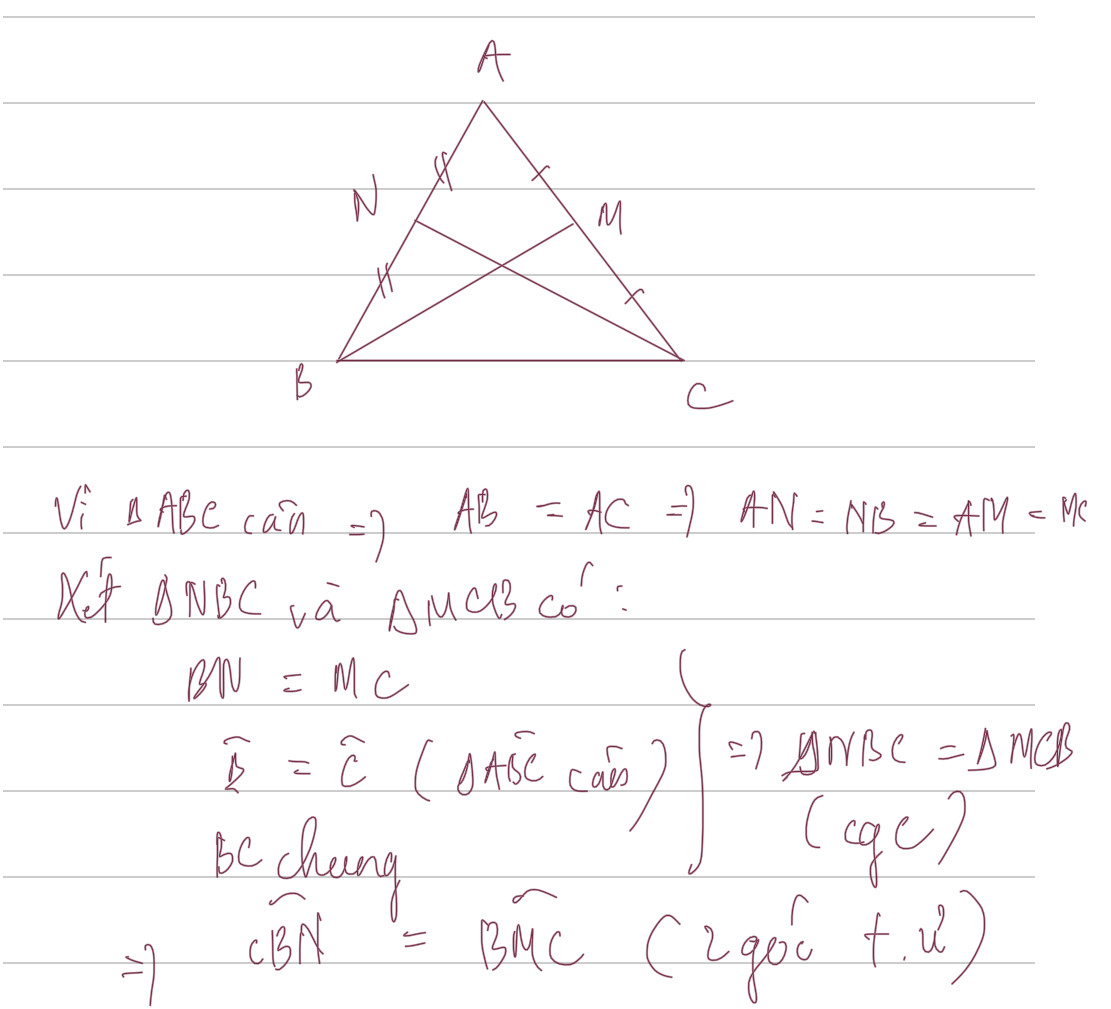 A
N
M
B
C
Vì Δ ABC cân => AB = AC => AN = NB = AM = MC
Xét ΔNBC và ΔMCB có:
BN = MC
B̂ = Ĉ (ΔABC cân)
BC chung
=> ΔNBC = ΔMCB
(cgc)
=> CBN = BMC (2 góc t.ứ)